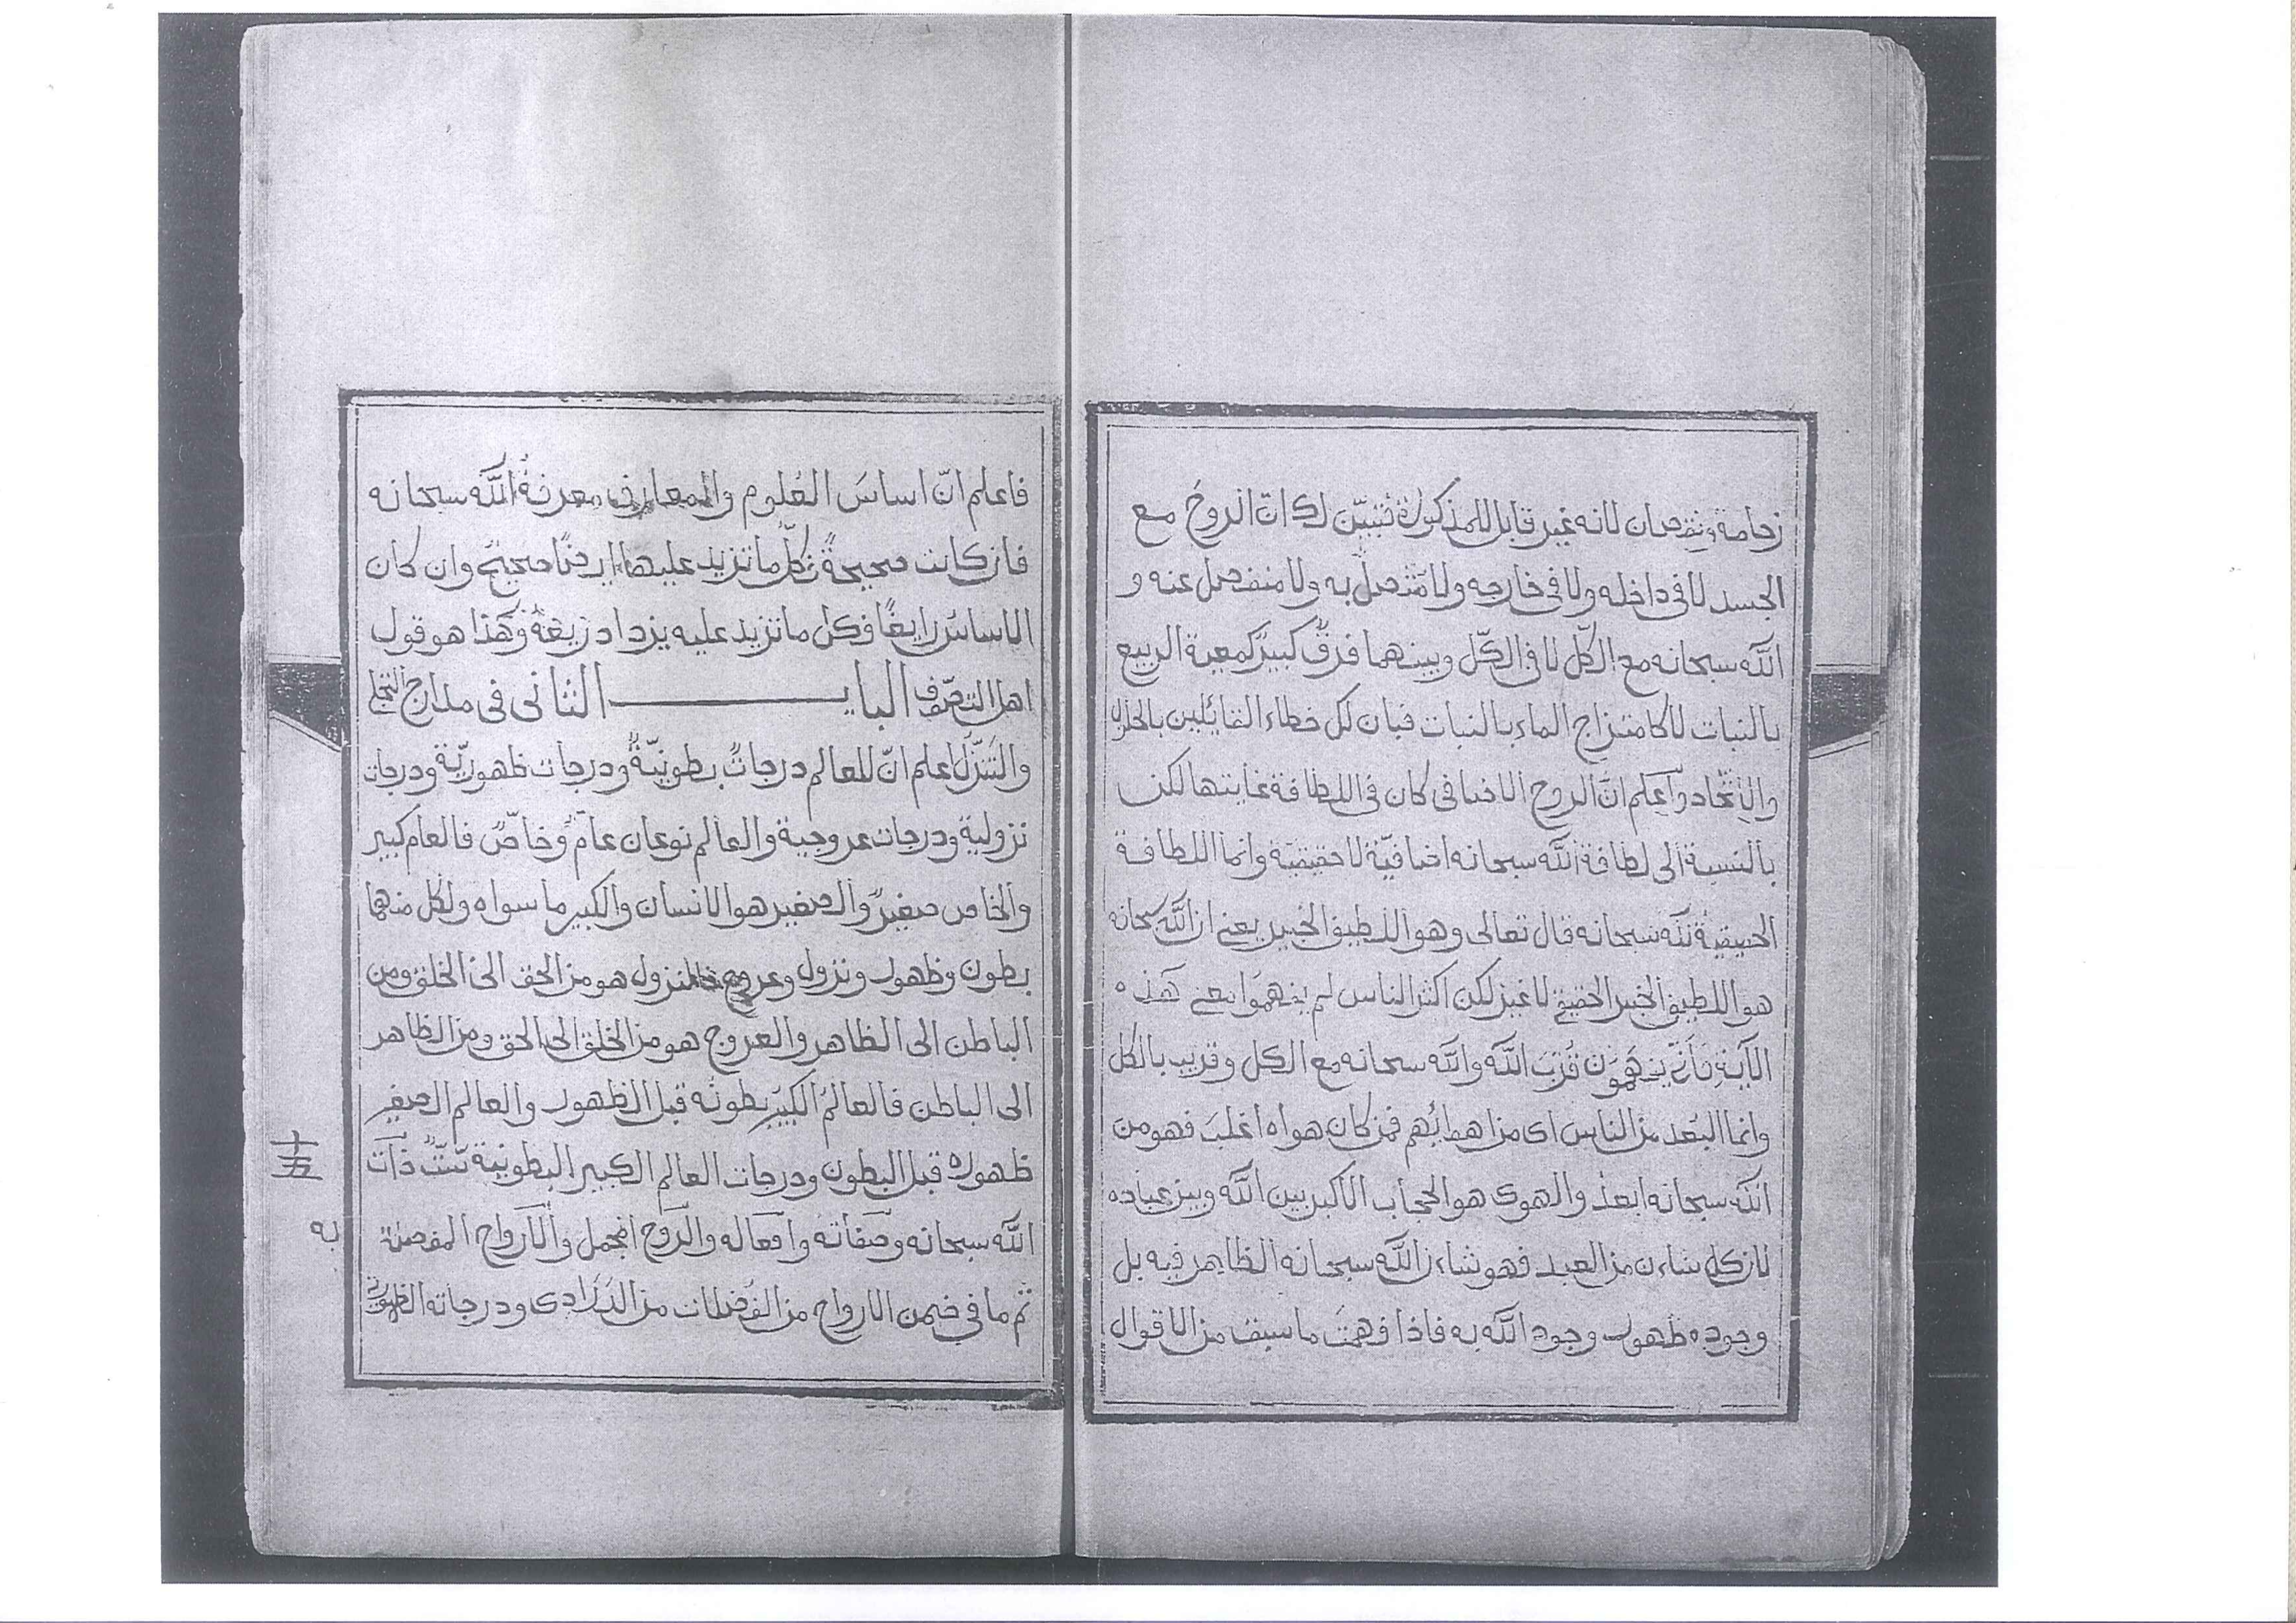 زحامة ونقصان لانه غير قابل للمذكورة فتبيّن لك انّ الروحَ مع
الجسد لا في داخله ولا في خارجه ولا متّصل به ولا منفصل عنه و
الله سبحانه مع الكلّ لا في الكلّ وبينهما فرقٌ كبيرٌ كمعية الربيع
بالنبات لا كامتزاج الماء بالنبات فبان لك خطاء القائلين بالحلول
والاتّحاد واعلم انّ الروح الاضافى كان فى اللطافة غايتها لكن
بالنسبة الى لطافة الله سبحانه اضافيّة لا حقيقية وانما اللطافة
الحقيقية لله سبحانه قال تعالى وهو اللطيف الخبير يعنى ان الله سبحانه
هو اللطيف الخبير الحقيقى لا غير لكن اكثر الناس لم يفهموا معنى هذه
الآية فأنّى يفهمون قُربَ الله والله سبحانه مع الكل وقريب بالكل
وانما البُعد من الناس اى من اهوائهم فمن كان هواه اغلبَ فهو من
الله سبحانه ابعدُ والهوى هو الحجاب الاكبر بين الله وبين عباده
لان كل شاءن من العبد فهو شاءن الله سبحانه الظاهر فيه بل
وجوده ظهور وجود الله به فاذا فهمتَ ما سبق من الاقوال
فاعلم انّ اساسَ العُلوم والمعارف معرفةُ الله سبحانه
فان كانت صحيحةً فكلّ ما تزيد عليها ايضًا صحيحٌ وان كان
الاساسُ زايغًا فكل ما تزيد عليه يزداد زيغةً وهذا هو قول
اهل التصوّف البابـــــــــ الثانى فى مدارج التجلى
والتنزّل اعلم انّ للعالم درجاتٌ بطونيّةٌ ودرجات ظهوريّة ودرجات
نزولية ودرجات عروجية والعالم نوعان عامٌ وخاصٌّ فالعام كبير
والخاص صغيرٌ والصغير هو الانسان والكبير ما سواه ولكل منهما
بطون وظهور ونزول وعروج فالنزول هو من الحق الى الخلق ومن
الباطن الى الظاهر والعروج هو من الخلق الى الحق ومن الظاهر
الى الباطن فالعالمُ الكبيرُ بطونُه قبل الظهور والعالم الصغير
ظهوره قبل البطون ودرجات العالم الكبير البطونية ستّ ذات
الله سبحانه وصفاته وافعاله والرّوح المجمل والارواح المفصلة
ثم ما فى ضمن الارواح من الفُضلات من الذرارى ودرجاته الظهورية
十五
به